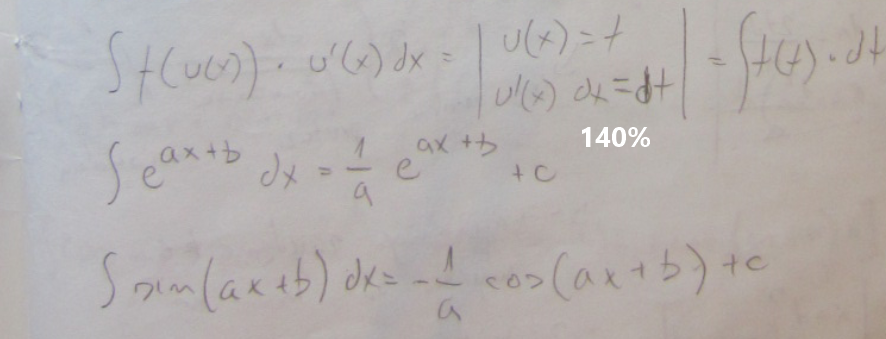 ∫ f(u(x)) · u'(x) dx = | u(x) = t | = ∫ f(t) · dt
u'(x) dx = dt
140%
∫ e^{ax+b} dx = 1/a e^{ax+b} + c
∫ sin(ax+b) dx = - 1/a cos(ax+b) + c